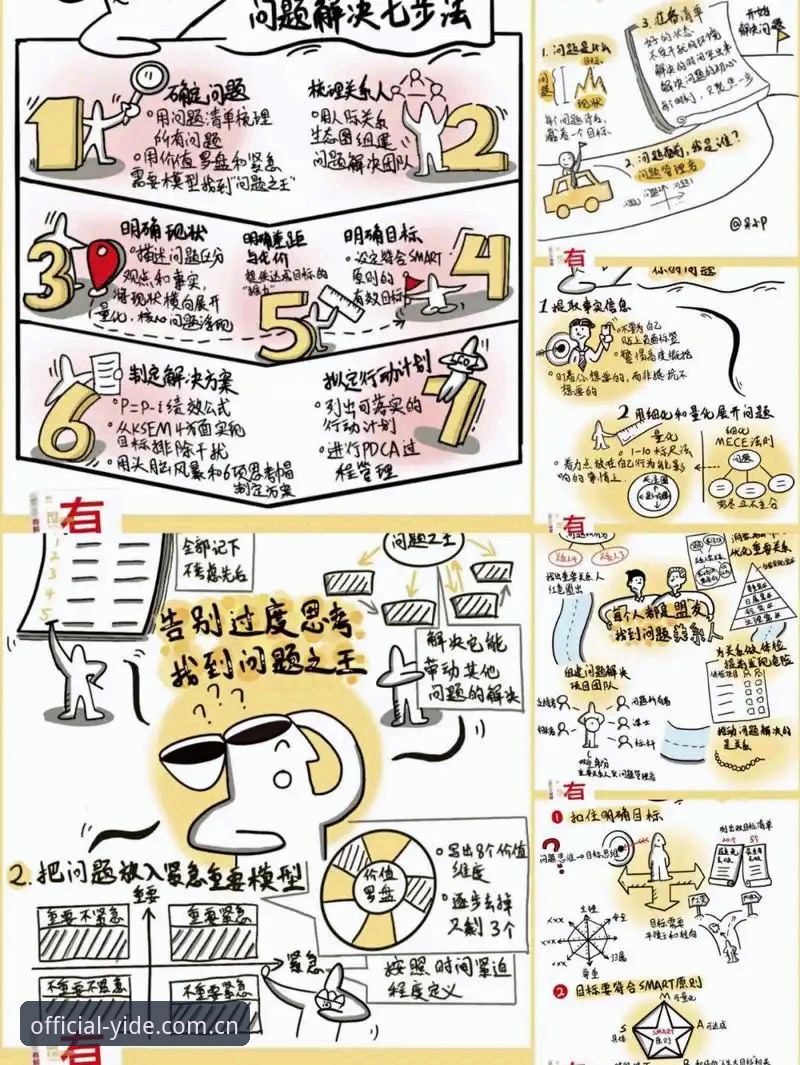 问题解决七步法
1
确定问题
用问题清单梳理
所有问题
用价值罗盘和紧急
需要模型找到"问题之王"
梳理关系人
用人际关系
生态图组建
问题解决团队
2
3
明确现状
描述问题区分
观点和事实,
将现状横向展开
量化,核心问题浮现
明确差距
与代价
5
明确目标
设定符合SMART
原则的
有效目标
4
6
制定解决方案
P=P-i绩效公式
从KSEM4方面实现
目标排除干扰
用头脑风暴和6顶思考帽
制定方案
拟定行动计划
列出可落实的
行动计划
进行PDCA过
程管理
7
有
1
2
3
4
5
全部记下
不考虑先后
问题之王
告别过度思考
找到问题之王
解决它能
带动其他
问题的解决
???
价值
罗盘
写出8个价值
维度
逐步去掉
只剩3个
2.把问题放入紧急重要模型
重要
重要不紧急
重要紧急
紧急
不重要不紧急
不重要紧急
按照时间紧迫
程度定义
official-yide.com.cn
有
1.问题是什么
目标
问题
现状
每个问题背后,
藏着一个目标
3.准备清单
好的状态
不受干扰的环境
开始
解决问题
2.问题面前,我是谁?
问题管理者
@吴小P
有
你的问题
1提取事实信息
不要为自己
贴上负面标签
警惕高度概括
盯着你想要的,而非抵抗不
想要的
2用细化和量化展开问题
量化
1-10标尺法
着力点放在自己行为能影
响的事情上
细化
MECE法则
问题
穷尽且不重合
有
优化重要关系
找出重要关系人
红色圈出
每个人都是盟友
找到问题关系人
为关系做体检
提前发现危险
组建问题解决
项目团队
问题所有者
谋士
标杆
推动问题解决的
是关系
有
1 扣住明确目标
问题思维→目标思维
目标需要
平衡和转向
2 目标要符合SMART原则
M可量化
S
具体
SMART
原则
A可达成